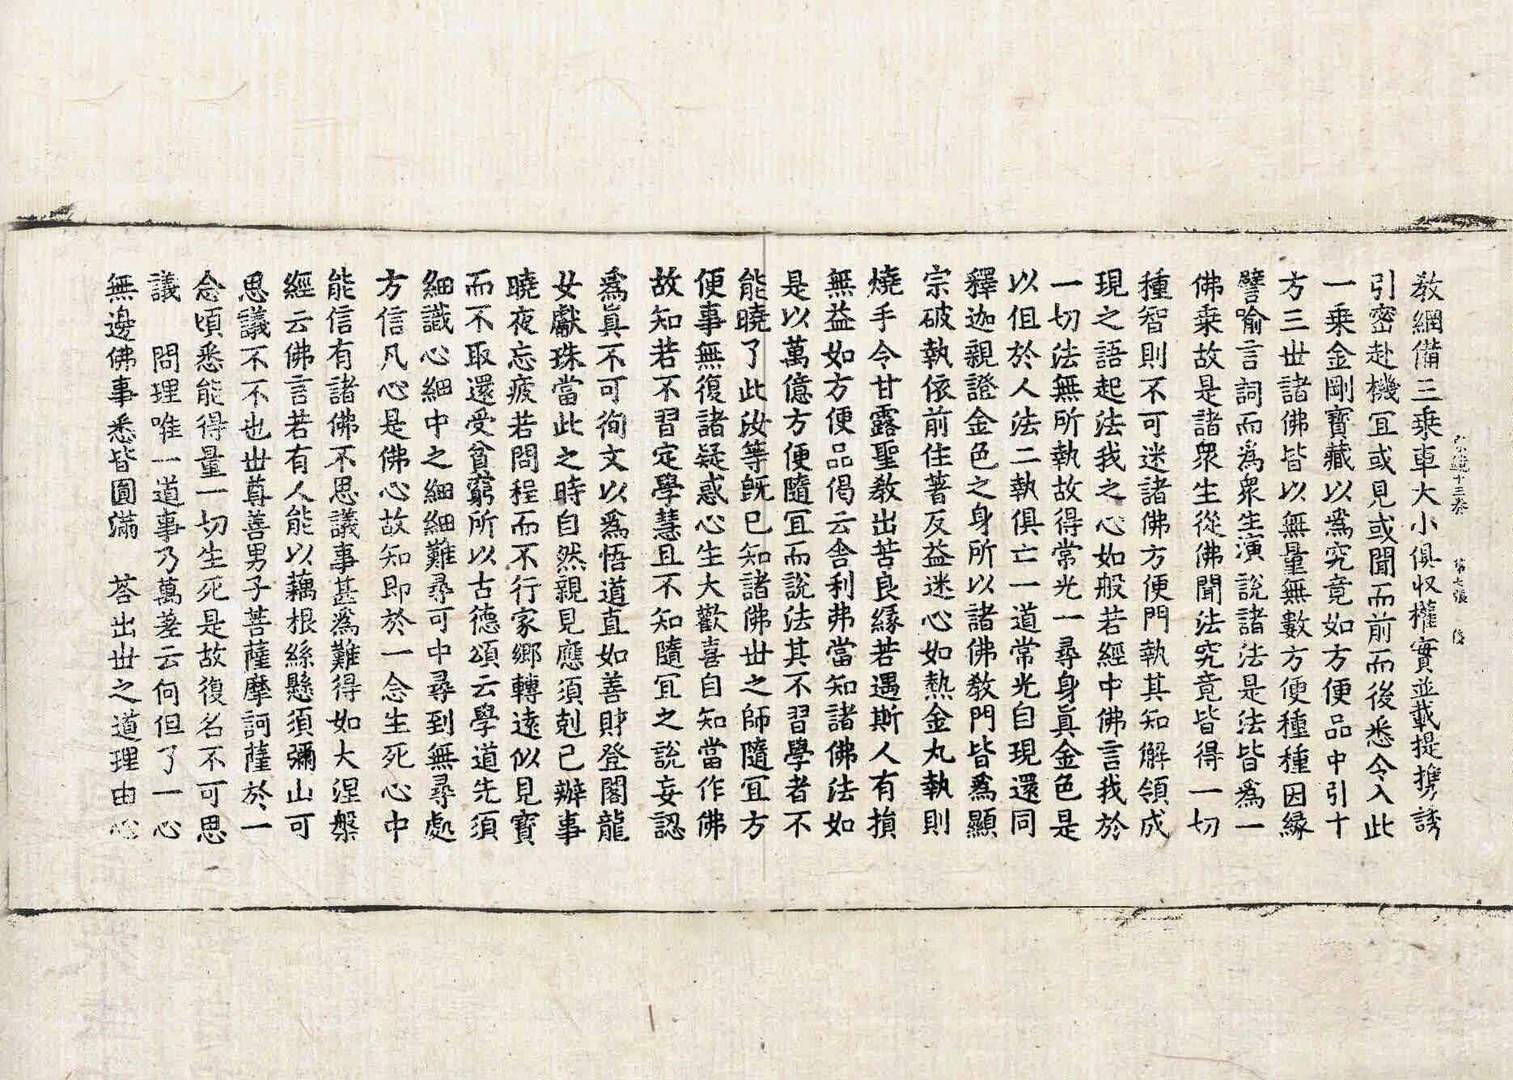 宗鏡十三卷 第七張 俊
教網備三乘車大小俱収權實並載提携誘
引密赴機冝或見或聞而前而後悉令入此
一乘金剛寶藏以爲究竟如方便品中引十
方三世諸佛皆以無量無數方便種種因緣
譬喻言詞而爲衆生演說諸法是法皆爲一
佛乘故是諸衆生從佛聞法究竟皆得一切
種智則不可迷諸佛方便門執其知解領成
現之語起法我之心如般若經中佛言我於
一切法無所執故得常光一尋身真金色是
以但於人法二執俱亡一道常光自現還同
釋迦親證金色之身所以諸佛教門皆爲顯
宗破執依前住著反益迷心如熱金丸執則
燒手令甘露聖教出苦良緣若遇斯人有損
無益如方便品偈云舍利弗當知諸佛法如
是以萬億方便隨冝而說法其不習學者不
能曉了此汝等既已知諸佛世之師隨冝方
便事無復諸疑惑心生大歡喜自知當作佛
故知若不習定學慧且不知隨冝之說妄認
爲真不可徇文以爲悟道直如善財登閣龍
女獻珠當此之時自然親見應須剋己辦事
曉夜忘疲若問程而不行家鄉轉遠似見寶
而不取還受貧窮所以古德頌云學道先須
細識心細中之細細難尋可中尋到無尋處
方信凡心是佛心故知即於一念生死心中
能信有諸佛不思議事甚爲難得如大涅槃
經云佛言若有人能以藕根絲懸須彌山可
思議不不也世尊善男子菩薩摩訶薩於一
念頃悉能得量一切生死是故復名不可思
議 問理唯一道事乃萬差云何但了一心
無邊佛事悉皆圓滿 荅出世之道理由心